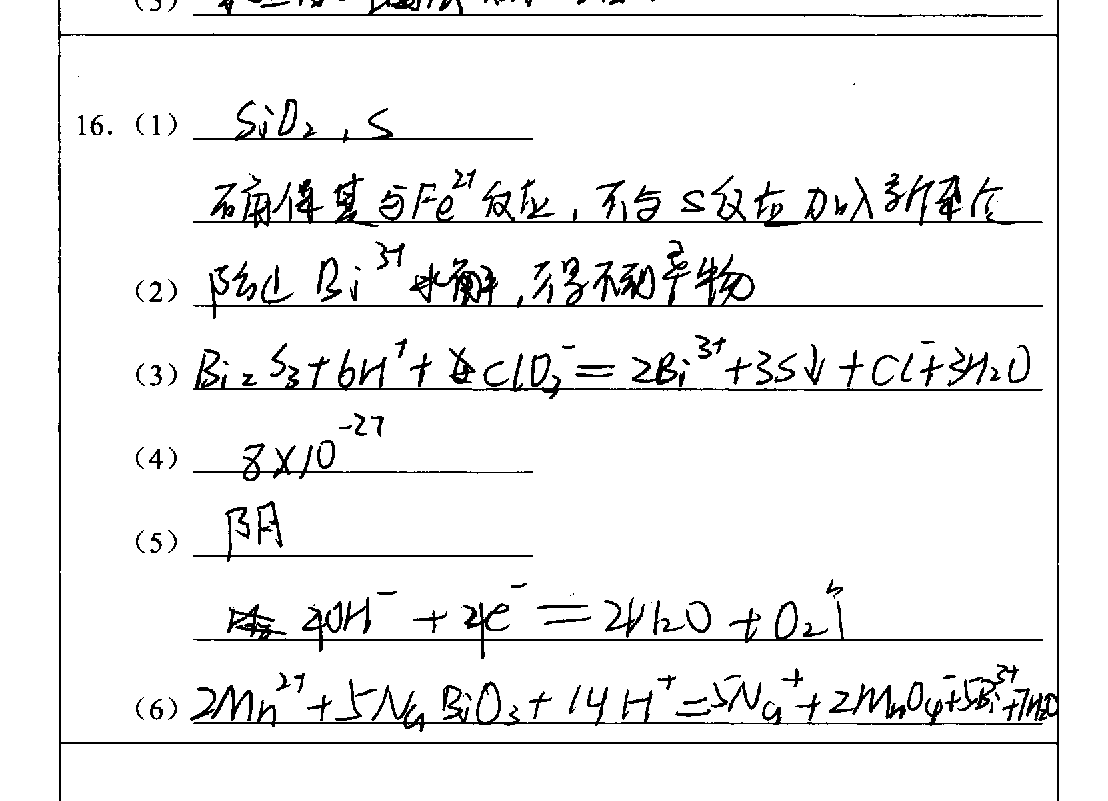 (3)
16. (1) SiO₂, S
确保其与Fe²⁺反应, 不与S反应 加入新
(2) Bi³⁺水解, 得不到产物
(3) Bi₂S₃+6H⁺+ClO₃⁻=2Bi³⁺+3S↓+Cl⁻+3H₂O
(4) 8×10⁻²⁷
(5) 阴
4OH⁻+4e⁻=2H₂O+O₂↑
(6) 2Mn²⁺+5NaBiO₃+14H⁺=5Na⁺+2MnO₄⁻+5Bi³⁺+7H₂O